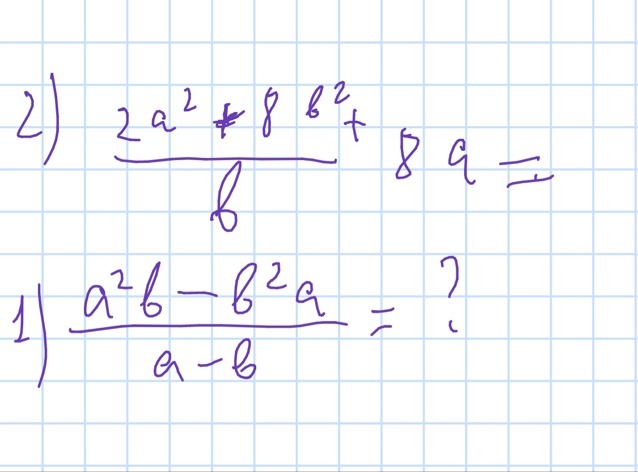 2) (2a² + 8b²)/b + 8a =
1) (a²b − b²a)/(a − b) = ?